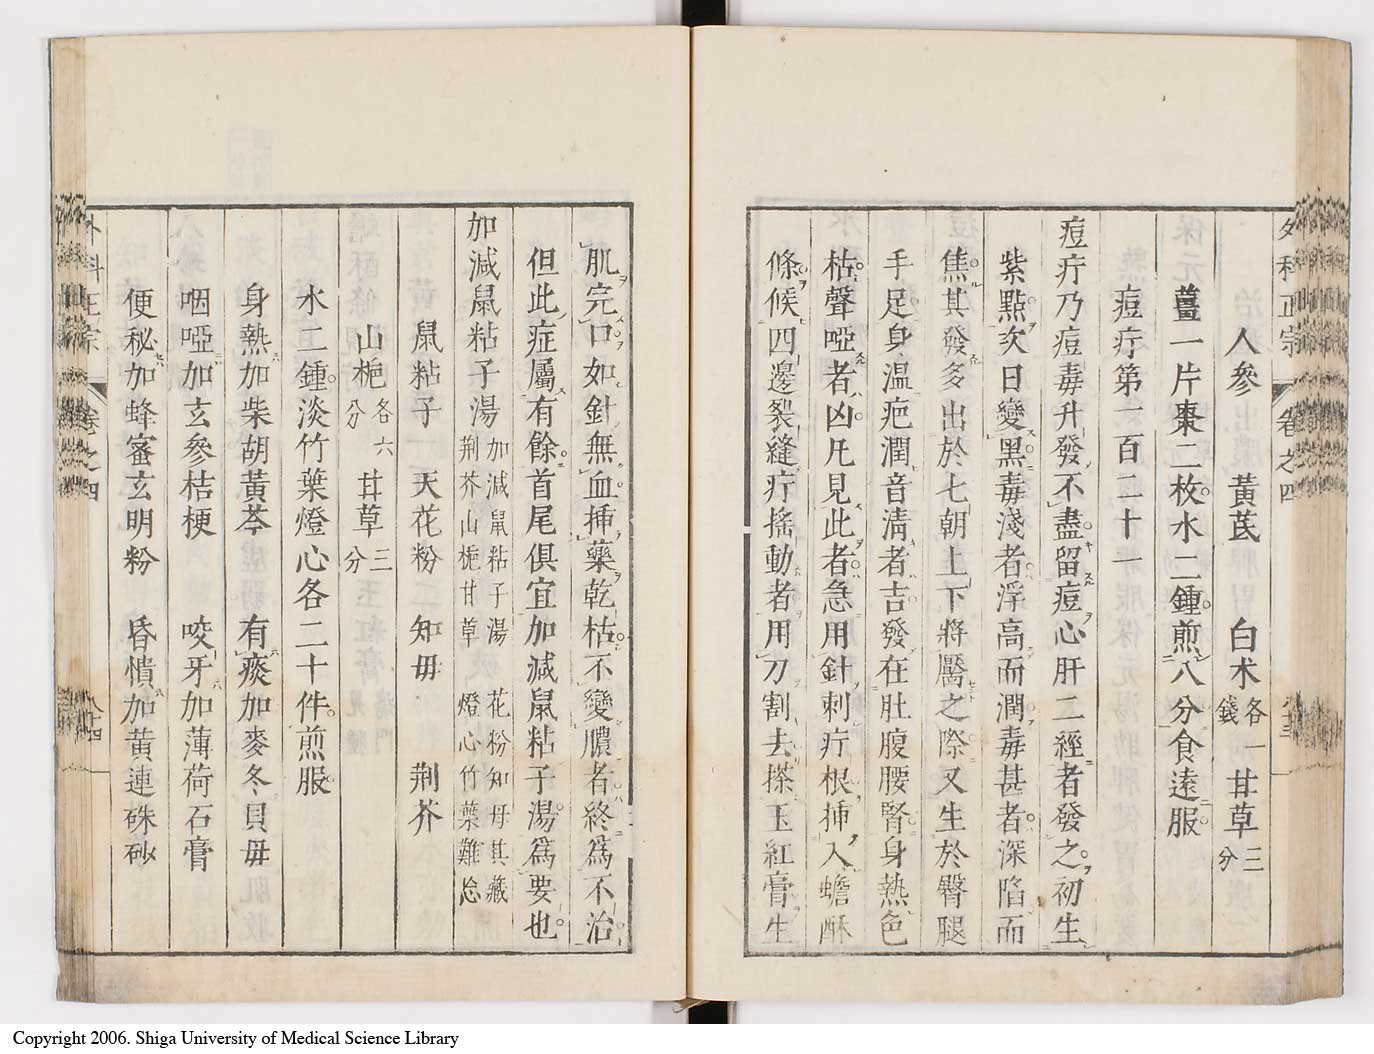 外科正宗 卷之四
人參 黃芪 白朮各一錢 甘草三分
薑一片棗二枚水二鍾煎八分食遠服
痘疔第一百二十一
痘疔乃痘毒升發不盡留痘心肝二經者發之初生
紫點次日變黑毒淺者浮高而潤毒甚者深陷而
焦其發多出於七朝上下將靨之際又生於臀腿
手足身温疤潤音清者吉發在肚腹腰腎身熱色
枯聲啞者凶凡見此者急用針刺疔根挿入蟾酥
條候四邊裂縫疔搖動者用刀割去搽玉紅膏生
肌完口如針無血挿藥乾枯不變膿者終爲不治
但此症屬有餘首尾俱宜加減鼠粘子湯爲要也
加減鼠粘子湯 加減鼠粘子湯 花粉知母其藏 荆芥山梔甘草 燈心竹葉難怠
鼠粘子 天花粉 知毋 荆芥
山梔各六分 甘草三分
水二鍾淡竹葉燈心各二十件煎服
身熱加柴胡黃芩 有痰加麥冬貝毋
咽啞加玄參桔梗 咬牙加薄荷石膏
便秘加蜂蜜玄明粉 昏憒加黃連硃砂
外科正宗 卷之四
Copyright 2006. Shiga University of Medical Science Library